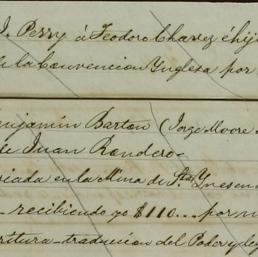 J. Perry á Teodoro Chavez é hij
de la Convencion Ynglesa por
Benjamin Barton (Jorge Moore
de Juan Rondero
ciada en la Mina de Sta Ynes en
recibiendo yo $110... por m
critura traduccion del Poder y le